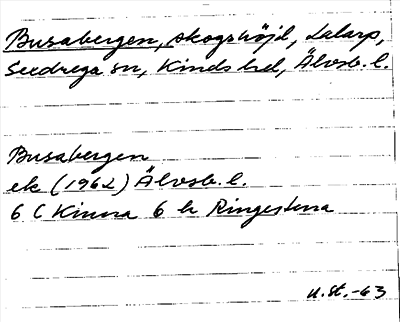 Busabergen, skogshöjd, Dalarp,
Sexdrega sn, Kinds hd, Älvsb. l.
Busabergen
ek (1962) Älvsb. l.
6 C Kinna 6 h Ringestena
U. St. -63